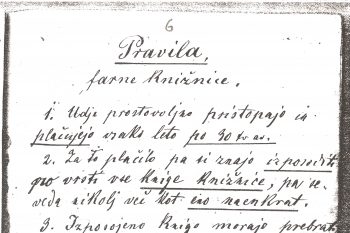 6
Pravila,
farne knižnice.
1. Udje prostovoljno pristopajo in
plačujejo vsako leto po 30
2. Za to plačilo pa si znajo izposodit
po vrsti vse knige knižnice, pa se
veda nikolj več kot eno naenkrat.
3. Izposojeno knigo morajo prebrat